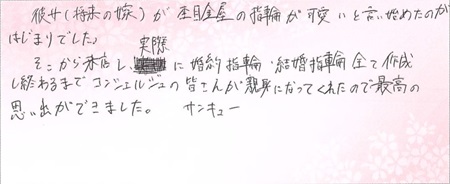 彼女(将来の嫁)が杢目金屋の指輪が可愛いと言い始めたのが
はじまりでした。
そこから来店し、実際に婚約指輪・結婚指輪全て作成
し終わるまでコンシェルジュの皆さんが親身になってくれたので最高の
思い出ができました。 サンキュー